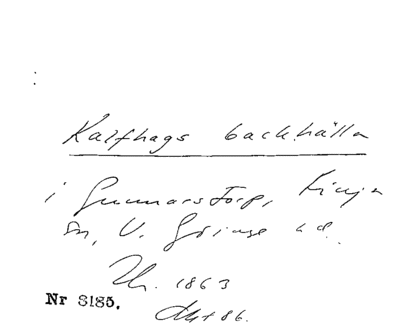 Kalfhags backhälla
i Gunnarstorp, Kinge
Sn, V. Göinge hd.
Uh. 1863
Nr 3185.
86.